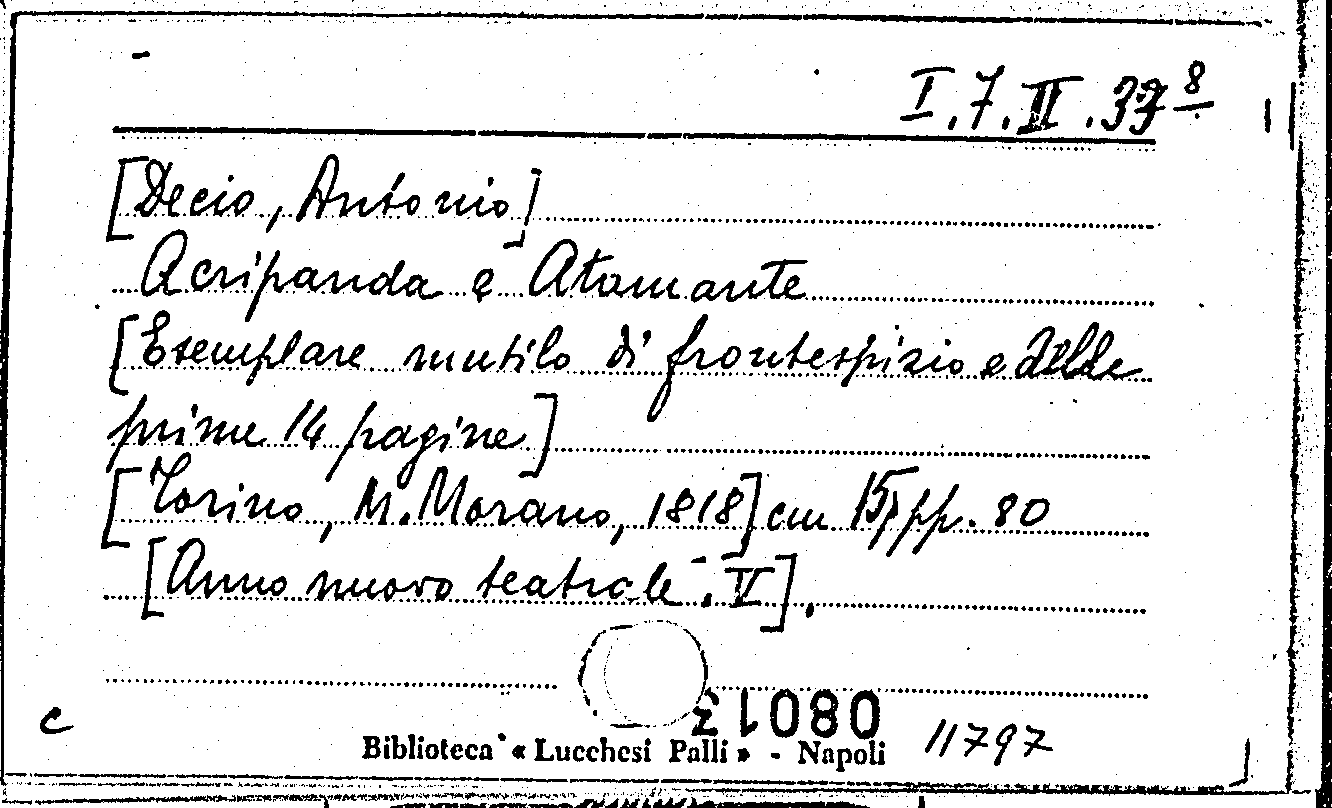 I.7.II.33 8
[Decio, Antonio]
Acripanda e Atamante
[Esemplare mutilo di frontespizio e delle
prime 14 pagine]
[Torino, M. Morano, 1818] cm 15, pp. 80
[Anno nuovo teatrale. V].
c
11797
Biblioteca « Lucchesi Palli » - Napoli